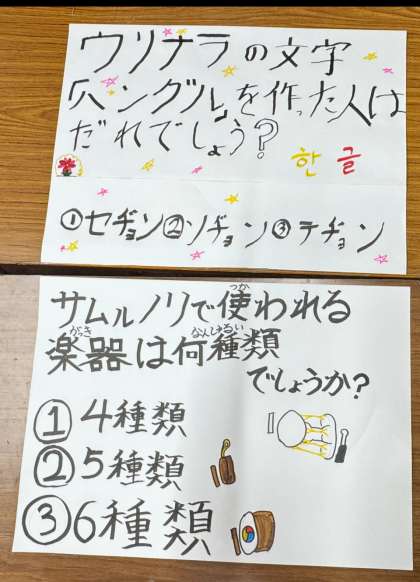 ウリナラの文字
「ハングル」を作った人は
だれでしょう?
한글
①セヂョン②ソヂョン③テヂョン
サムルノリで使われる
つか
楽器は何種類
がっき なんしゅるい
でしょうか?
①4種類
②5種類
③6種類